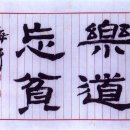 樂道
忘貧